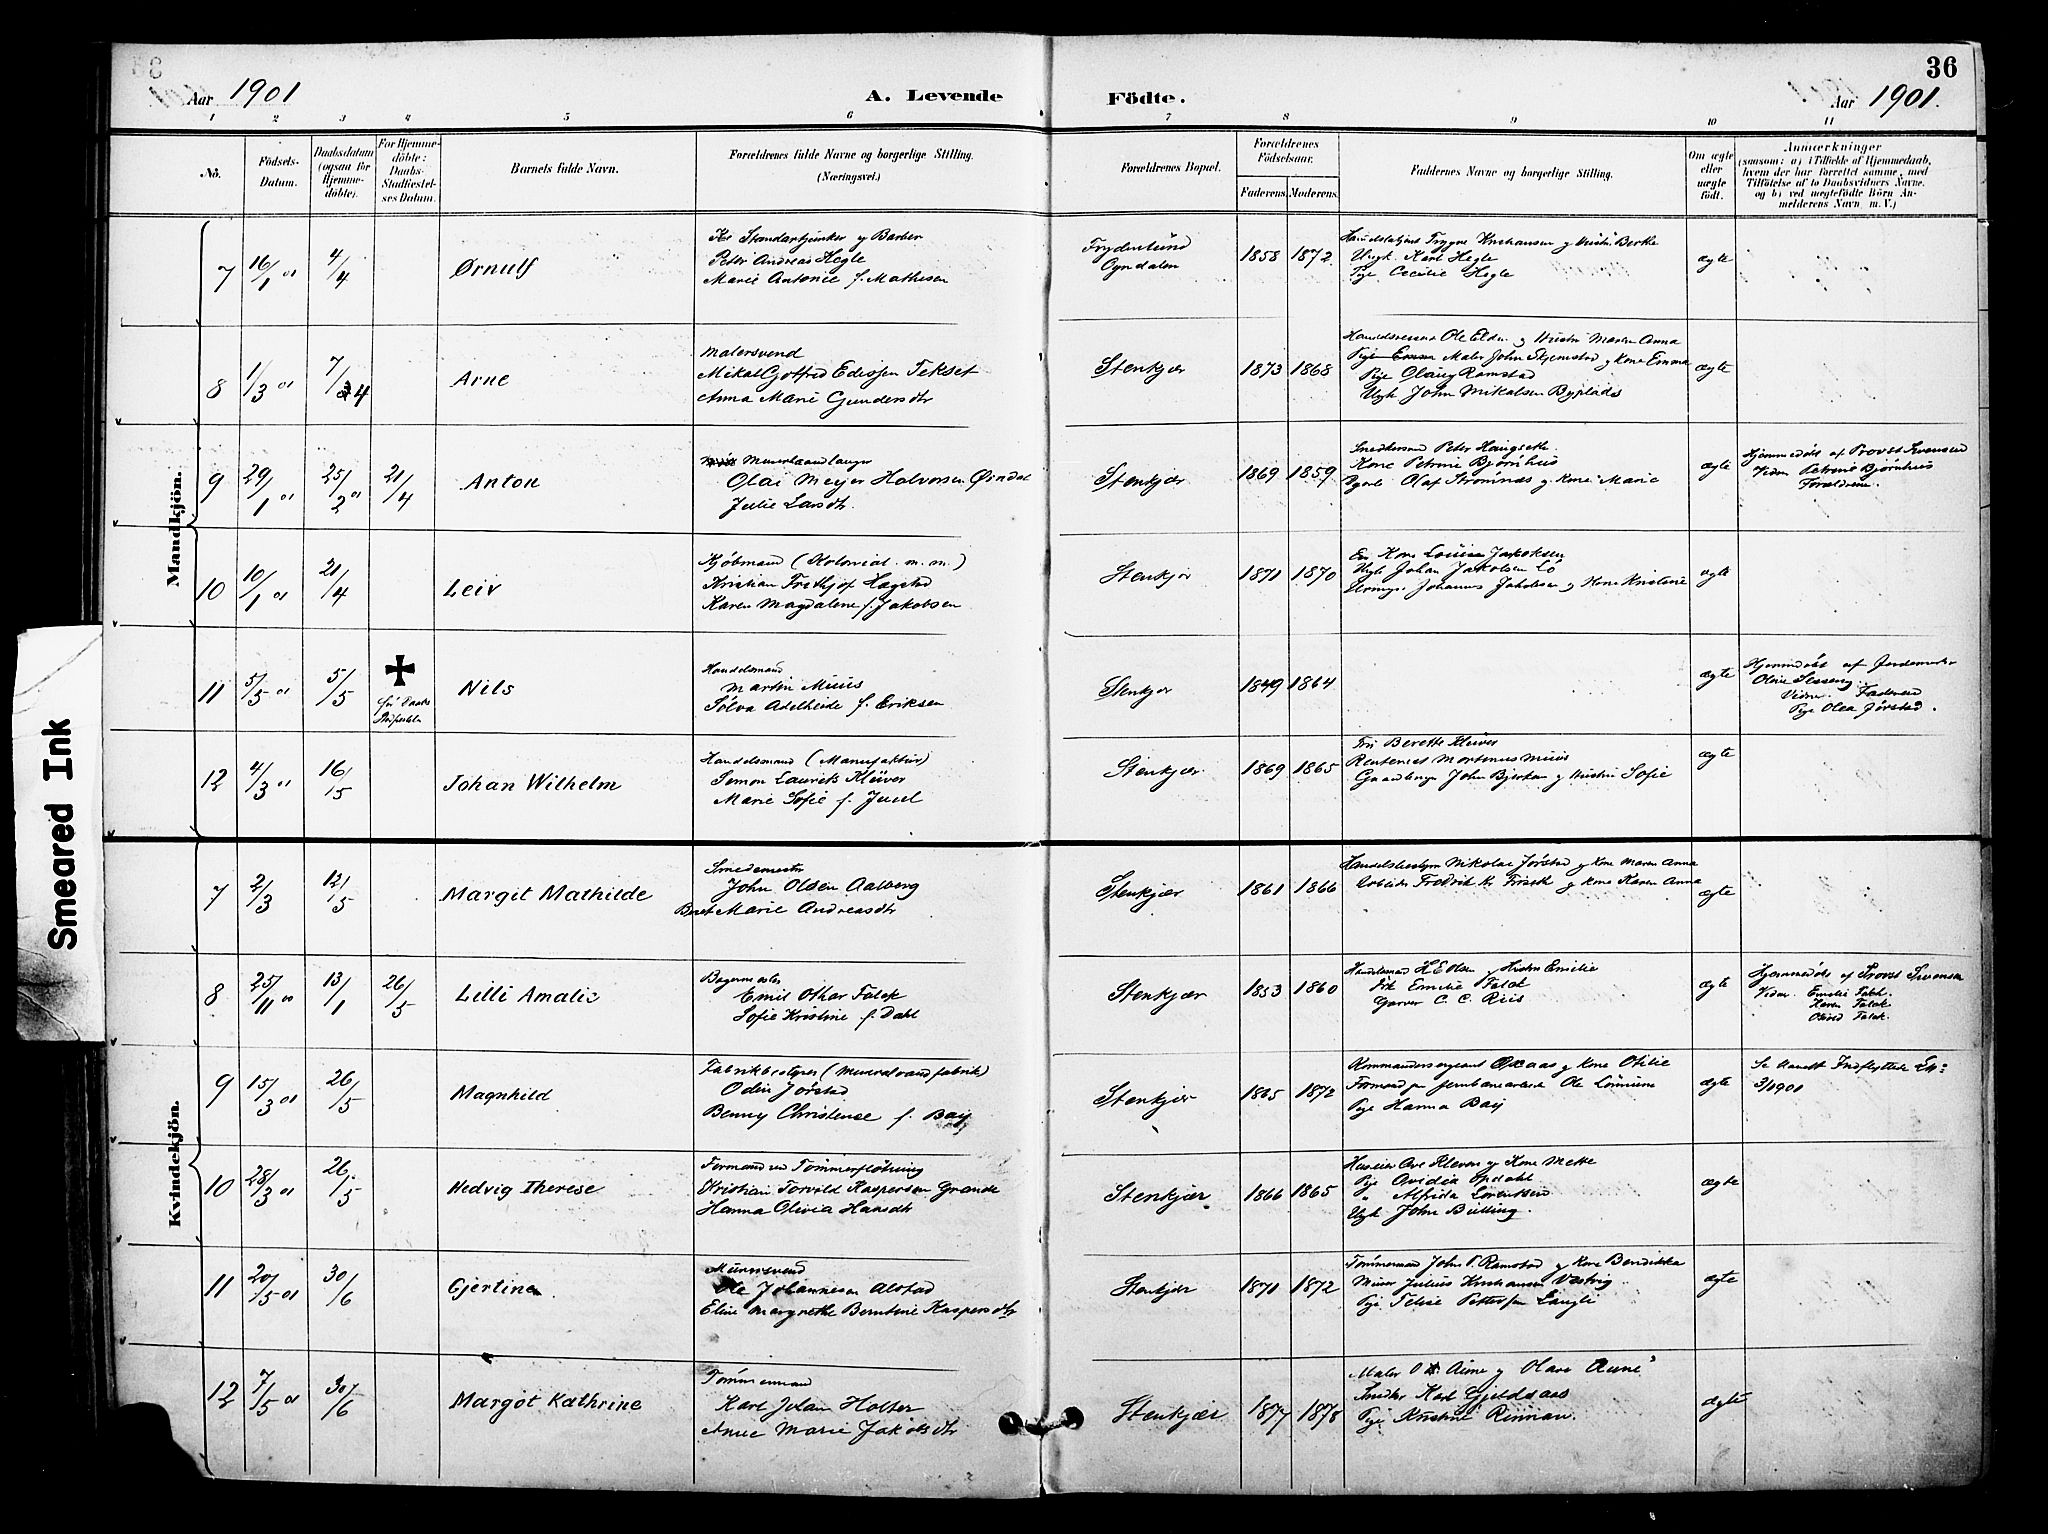 36
Aar 1901
A. Levende Födte.
Aar 1901.
1 2 3 4 5 6 7 8 9 10 11
No.
Födsels-Datum.
Daabsdatum (ogsaa for Hjemmedöbte).
For Hjemmedöbte: Daabs-Stadfæstelses Datum.
Barnets fulde Navn.
Forældrenes fulde Navne og borgerlige Stilling. (Næringsvei.)
Forældrenes Bopæl.
Forældrenes Födselsaar.
Faderens. Moderens.
Faddernes Navne og borgerlige Stilling.
Om ægte eller uægte födt.
Anmærkninger
(saasom: a) i Tilfælde af Hjemmedaab, hvem der har forrettet samme, med Tilföielse af to Daabsvidners Navne. og b) ved uægtefödte Börn Anmelderens Navn m. V.)
Mandkjön.
7 16/1 01 4/4 Ørnulf
Standartjunker og Barber
Peter Andreas Hegle
Marie Antonie f. Mathisen
Frydenlund
Ogndalen
1858 1872
Trygve Kristiansen
Ungk. Karl Hegle
Pige Cecilie Hegle
ægte
8 1/3 01 7/4 Arne
Malersvend
Mikal Gotfred Edissen Tekset
Anna Marie Gundersdtr
Stenkjær 1873 1868
Ole Elden og Hustru Maren Anna
Pige Emma Maler John Skjemstad og Kone Emma
Pige Olaug Ramstad
Ungk John Mikalsen Byplads
ægte
9 29/1 01 25/2 01 21/4 Anton
Murerhaandlanger
Olai Meyer Halvorsen Øindal
Julie Larsdtr.
Stenkjær 1869 1859
Snedkersvend Peter Haugsette
Kone Petrine Bjørnhus
Olaf Strømnæs og Kone Marie
ægte
Hjemmedøbt af Provst Svensen
Vidner Petrine Bjørnhus
Forældrene.
10 10/1 01 21/4 Leiv
Kjøbmand (Kolonial m. m.)
Kristian Frithjof Hagstad
Karen Magdalene f. Jakobsen
Stenkjær 1871 1870
Kone Louise Jakobsen
Ungk Johan Jakobsen Lö
Johannes Jakobsen og Kone Kristine
ægte
11 5/5 01 5/5 Nils
Handelsmand
Martin Muus
Sölva Adelheide f. Eriksen
Stenkjær 1849 1864
ægte
Hjemmedøbt af Jordemoder
Oline Sesseng.
Vidner. Faderen
Pige Olea Jørstad.
12 4/3 01 16/5 Johan Wilhelm
Handelsmand (Manufaktur)
Simon Laurits Klüver
Marie Sofie f. Juul
Stenkjær 1869 1865
Berette Klüver
Rentenist Mortenes Muus
John Bjerkan og Hustru Sofie
ægte
Kvindekjön.
7 2/3 12/5 Margit Mathilde
Smedemester
John Olsen Aalberg
Beret Marie Andreasdtr
Stenkjær 1861 1866
Handelsbestyrer Nikolai Jørstad og Kone Maren Anna
Arbeider Fredrik Kr Frisch og Kone Karen Anna
ægte
8 25/11 00 13/1 26/5 Lilli Amalie
Bagermester
Emil Othar Falck
Sofie Kristine f. Dahl
Stenkjær 1853 1860
Handelsmand H E Olsen og Hustru Emilie
Frk Emilie Falck
Garver C. C. Riis
ægte
Hjemmedøbt af Provst Svensen
Vidner. Emilie Falck.
Karen Falck
Falck.
9 15/3 01 26/5 Magnhild
Fabrikbestyrer (Mineralvandfabrik)
Odin Jørstad
Benny Christense f. Bay
Stenkjær 1865 1872
Kommandersergeant Opaas og Kone Otilie
Formand Ole Lönnum
Pige Hanna Bay
ægte
Se Anmeldt Indflyttede
3/1901
10 28/3 01 26/5 Hedvig Therese
Formand ved Tömmerflötning
Kristian Torvild Kaspersen Grande
Hanna Olivia Hansdtr
Stenkjær 1866 1865
Huseier Ove Kleven og Kone Mette
Pige Ovidia Opdahl
" Alfrida Lorentsen
Ungk John Bulling.
ægte
11 20/5 01 30/6 Gjertine
Murersvend
Ole Johannesen Alstad
Elise Margrethe Berntine Kaspersdtr
Stenkjær 1871 1872
Tømmermand John P. Ramstad og Kone Bendikka
Murer Julius Kristiansen Vestvig
Pige Pettersen Langli
ægte
12 7/5 01 30/6 Margot Kathrine
Tömmermand
Karl Johan Holter
Anne Marie Jakobsdtr
Stenkjær 1877 1878
Maler O Aune og Olava Aune
Snedker Karl Gjeldsaas
Pige Kristine Rinnan.
ægte
Smeared Ink